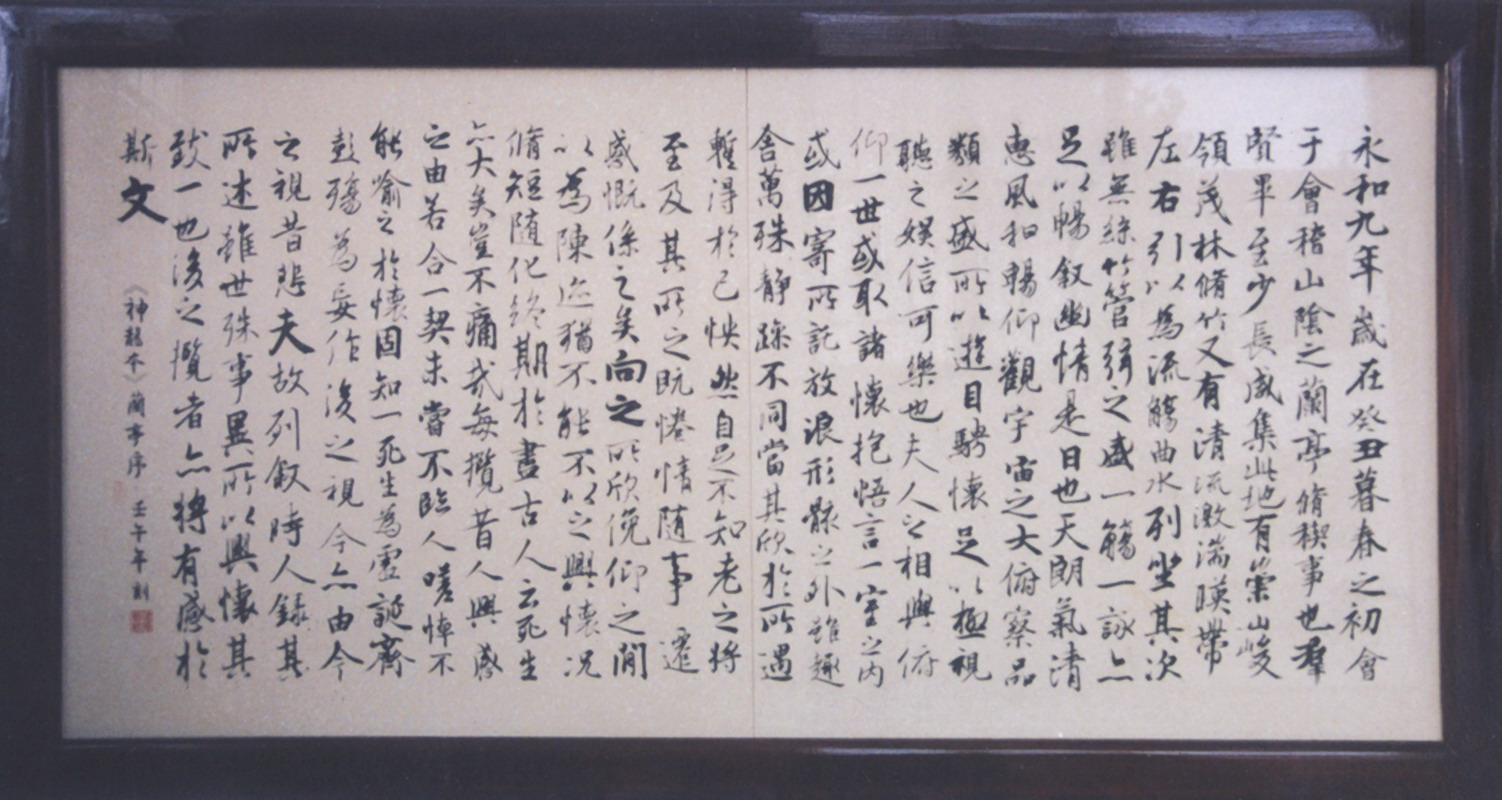 永和九年歲在癸丑暮春之初會
于會稽山陰之蘭亭脩稧事也羣
賢畢至少長咸集此地有崇山峻
領茂林脩竹又有清流激湍暎帶
左右引以為流觴曲水列坐其次
雖無絲竹管弦之盛一觴一詠亦
足以暢叙幽情是日也天朗氣清
惠風和暢仰觀宇宙之大俯察品
類之盛所以遊目騁懷足以極視
聽之娛信可樂也夫人之相與俯
仰一世或取諸懷抱悟言一室之內
或因寄所託放浪形骸之外雖趣
舍萬殊静躁不同當其欣於所遇
暫得於己怏然自足不知老之將
至及其所之既惓情隨事遷
感慨係之矣向之所欣俛仰之間
以為陳迹猶不能不以之興懷況
脩短隨化終期於盡古人云死生
亦大矣豈不痛哉每攬昔人興感
之由若合一契未嘗不臨人嗟悼不
能喻之於懷固知一死生為虛誕齊
彭殤為妄作後之視今亦由今
之視昔悲夫故列叙時人錄其
所述雖世殊事異所以興懷其
致一也後之攬者亦將有感於
斯文
《神龍本》蘭亭序 壬午年刻